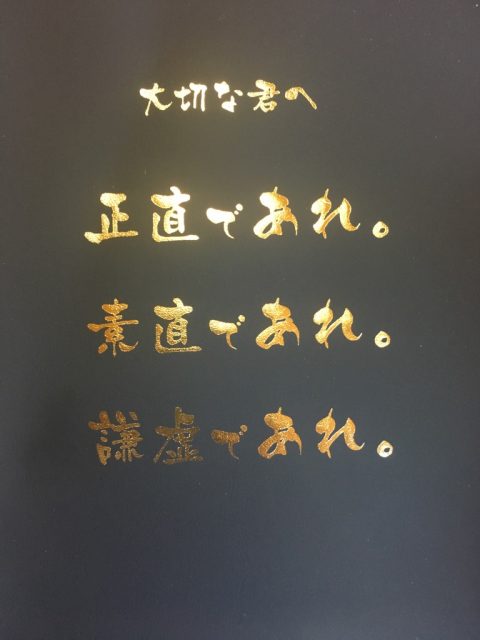 大切な君へ
正直であれ。
素直であれ。
謙虚であれ。